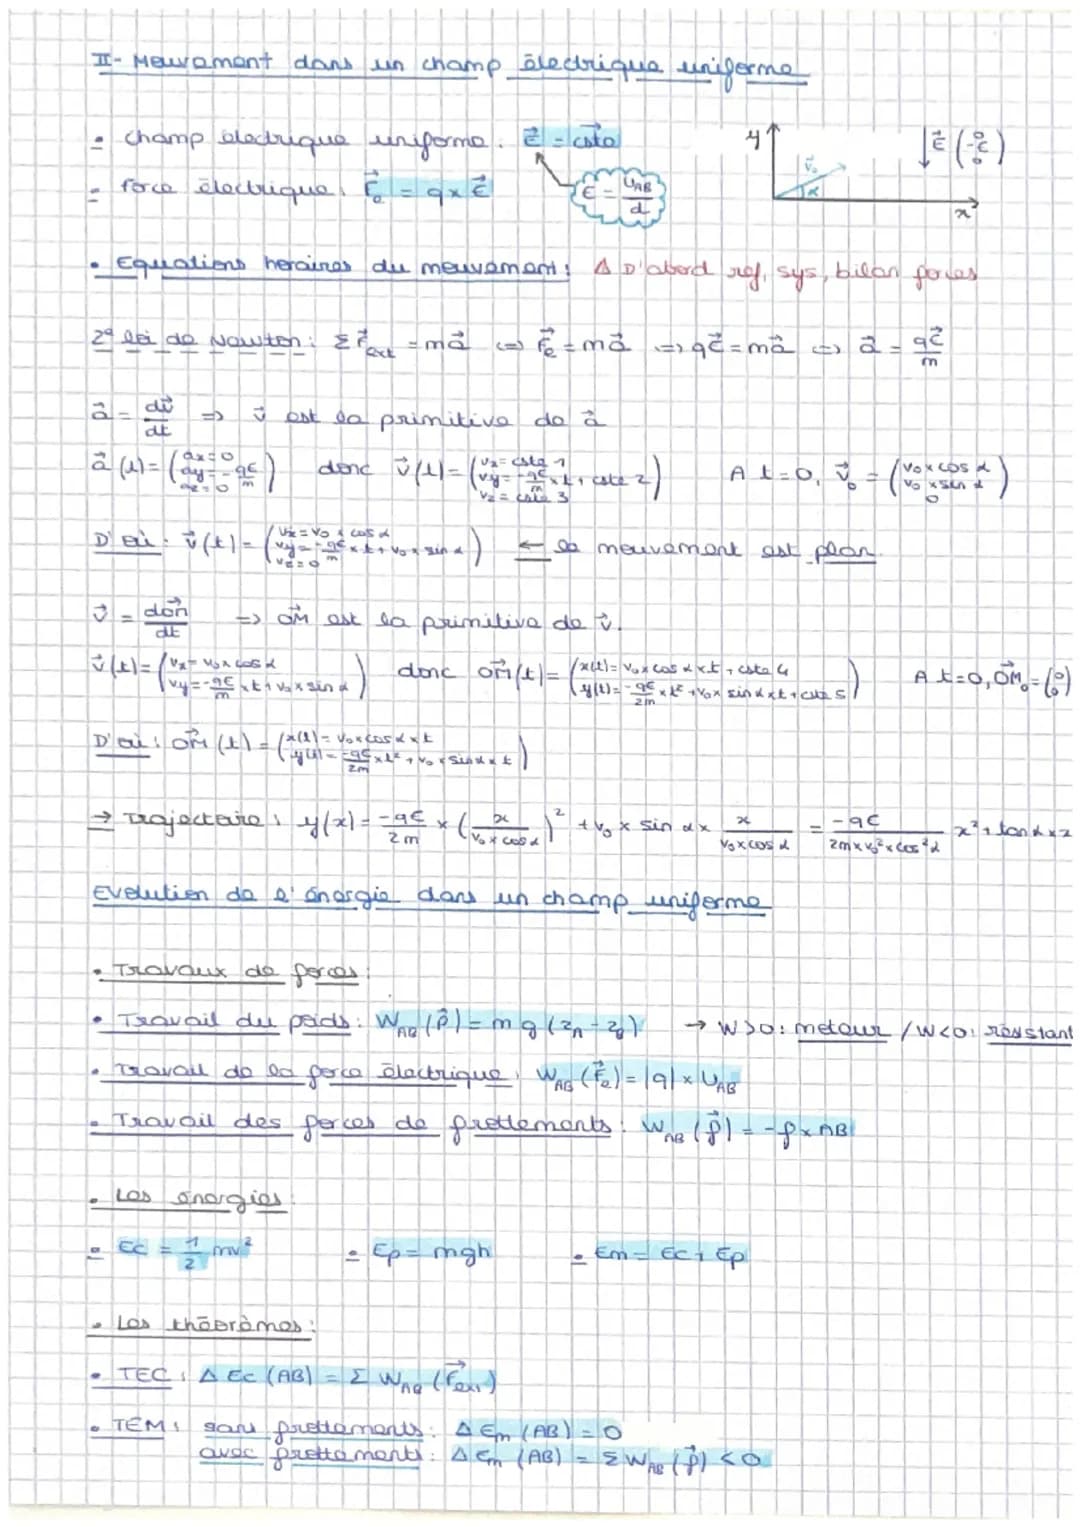 II- Mouvement dans un champ électrique uniforme
• champ électrique uniforme : E⃗ = cste⃗
E = U_AB / d
y
v⃗₀
α
x
E⃗ (0 -E 0)
- force électrique : F⃗e = q x E⃗
• Equations horaires du mouvement : ⚠ D'abord ref, sys, bilan forces
2e loi de Newton : Σ F⃗ext = ma⃗ <=> F⃗e = ma⃗ => qE⃗ = ma⃗ <=> a⃗ = qE⃗/m
a⃗ = dv⃗/dt => v⃗ est la primitive de a⃗
a⃗(t) = (ax = 0 ; ay = -qE/m ; az = 0) donc v⃗(t) = (vx = cste 1 ; vy = -qE/m x t + cste 2 ; vz = cste 3) A t=0, v⃗₀ = (v₀ x cos α ; v₀ x sin α ; 0)
D'où : v⃗(t) = (vx = v₀ x cos α ; vy = -qE/m x t + v₀ x sin α ; vz = 0) ← le mouvement est plan
v⃗ = dOM⃗/dt => OM⃗ est la primitive de v⃗.
v⃗(t) = (vx = v₀ x cos α ; vy = -qE/m x t + v₀ x sin α) donc OM⃗(t) = (x(t) = v₀ x cos α x t + cste 4 ; y(t) = -qE/2m x t² + v₀ x sin α x t + cste 5) A t=0, OM⃗₀ = (0 0)
D'où : OM⃗(t) = (x(t) = v₀ x cos α x t ; y(t) = -qE/2m x t² + v₀ x sin α x t)
→ Trajectoire : y(x) = -qE/2m x (x / v₀ x cos α)² + v₀ x sin α x x / v₀ x cos α = -qE / 2m x v₀² x cos² α x² + tan α x x
Evolution de l'énergie dans un champ uniforme
• Travaux de forces :
• Travail du poids : W_AB (P⃗) = mg (z_A - z_B) → W>0 : moteur / W<0 : résistant
• Travail de la force électrique : W_AB (F⃗e) = |q| x U_AB
• Travail des forces de frottements : W_AB (f⃗) = -f x AB
• Les énergies :
• Ec = 1/2 mv² • Ep = mgh • Em = Ec + Ep
• Les théorèmes :
• TEC : Δ Ec (AB) = Σ W_AB (F⃗ext)
• TEM : sans frottements : Δ Em (AB) = 0
avec frottements : Δ Em (AB) = Σ W_AB (f⃗) < 0